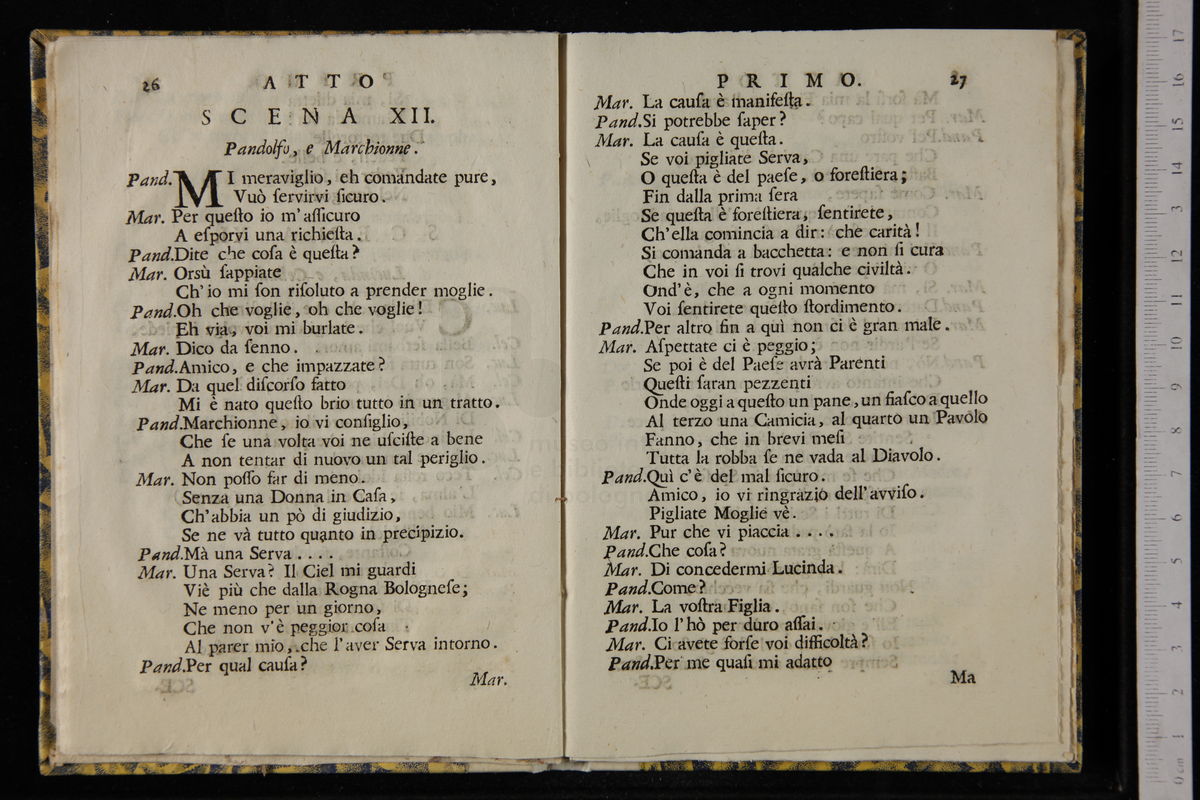 26 ATTO
SCENA XII.
Pandolfo, e Marchionne.
Pand. MI meraviglio, eh comandate pure,
Vuò ſervirvi ſicuro.
Mar. Per queſto io m'aſſicuro
A eſporvi una richieſta.
Pand. Dite che coſa è queſta?
Mar. Orsù ſappiate
Ch'io mi ſon riſoluto a prender moglie.
Pand. Oh che voglie, oh che voglie!
Eh via, voi mi burlate.
Mar. Dico da ſenno.
Pand. Amico, e che impazzate?
Mar. Da quel diſcorſo fatto
Mi è nato queſto brio tutto in un tratto.
Pand. Marchionne, io vi conſiglio,
Che ſe una volta voi ne uſciſte a bene
A non tentar di nuovo un tal periglio.
Mar. Non poſſo far di meno.
Senza una Donna in Caſa,
Ch'abbia un pò di giudizio,
Se ne và tutto quanto in precipizio.
Pand. Mà una Serva....
Mar. Una Serva? Il Ciel mi guardi
Viè più che dalla Rogna Bologneſe;
Ne meno per un giorno,
Che non v'è peggior coſa
Al parer mio, che l'aver Serva intorno.
Pand. Per qual cauſa?
Mar.
PRIMO. 27
Mar. La cauſa è manifeſta.
Pand. Si potrebbe ſaper?
Mar. La cauſa è queſta.
Se voi pigliate Serva,
O queſta è del paeſe, o foreſtiera;
Fin dalla prima ſera
Se queſta è foreſtiera, ſentirete,
Ch'ella comincia a dir: che carità!
Si comanda a bacchetta: e non ſi cura
Che in voi ſi trovi qualche civiltà.
Ond'è, che a ogni momento
Voi ſentirete queſto ſtordimento.
Pand. Per altro fin a quì non ci è gran male.
Mar. Aſpettate ci è peggio;
Se poi è del Paeſe avrà Parenti
Queſti ſaran pezzenti
Onde oggi a queſto un pane, un fiaſco a quello
Al terzo una Camicia, al quarto un Pavolo
Fanno, che in brevi meſi
Tutta la robba ſe ne vada al Diavolo.
Pand. Quì c'è del mal ſicuro.
Amico, io vi ringrazio dell'avviſo.
Pigliate Moglie vè.
Mar. Pur che vi piaccia....
Pand. Che coſa?
Mar. Di concedermi Lucinda.
Pand. Come?
Mar. La voſtra Figlia.
Pand. Io l'hò per duro aſſai.
Mar. Ci avete forſe voi difficoltà?
Pand. Per me quaſi mi adatto
Ma